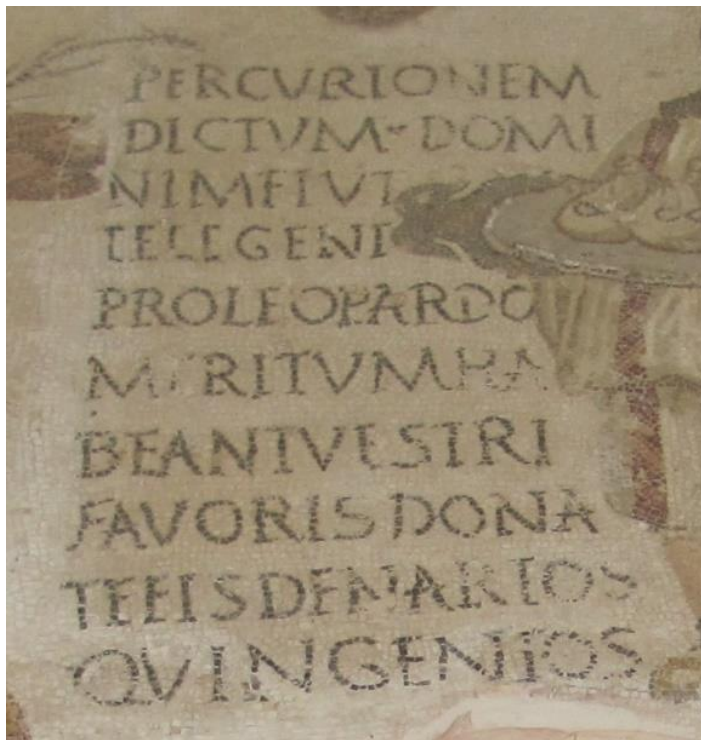 PERCVRIONEM
DICTVM DOMI
NIMEIVT
TELEGENI
PROLEOPARDO
MERITVMHA
BEANTVESTRI
FAVORISDONA
TEEISDENARIOS
QVINGENTOS